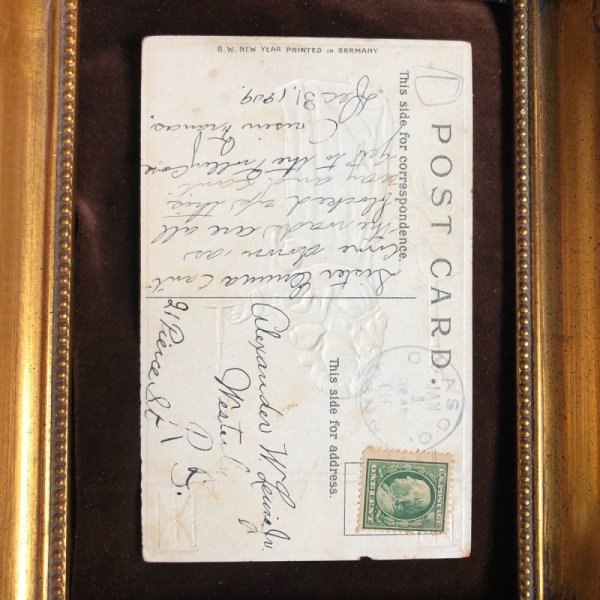 B. W. NEW YEAR PRINTED IN GERMANY
POST CARD.
This side for correspondence.
Sister Emma can't
come down as
the roads are all
blocked up this
way and can't
get to the trolley Car
Cousin Frances.
Dec 31, 1909.
This side for address.
Alexander W Lewis Jr.
Westerly
R. I.
21 Pierce St
JAN
1
CONN
U.S. POSTAGE
ONE CENT